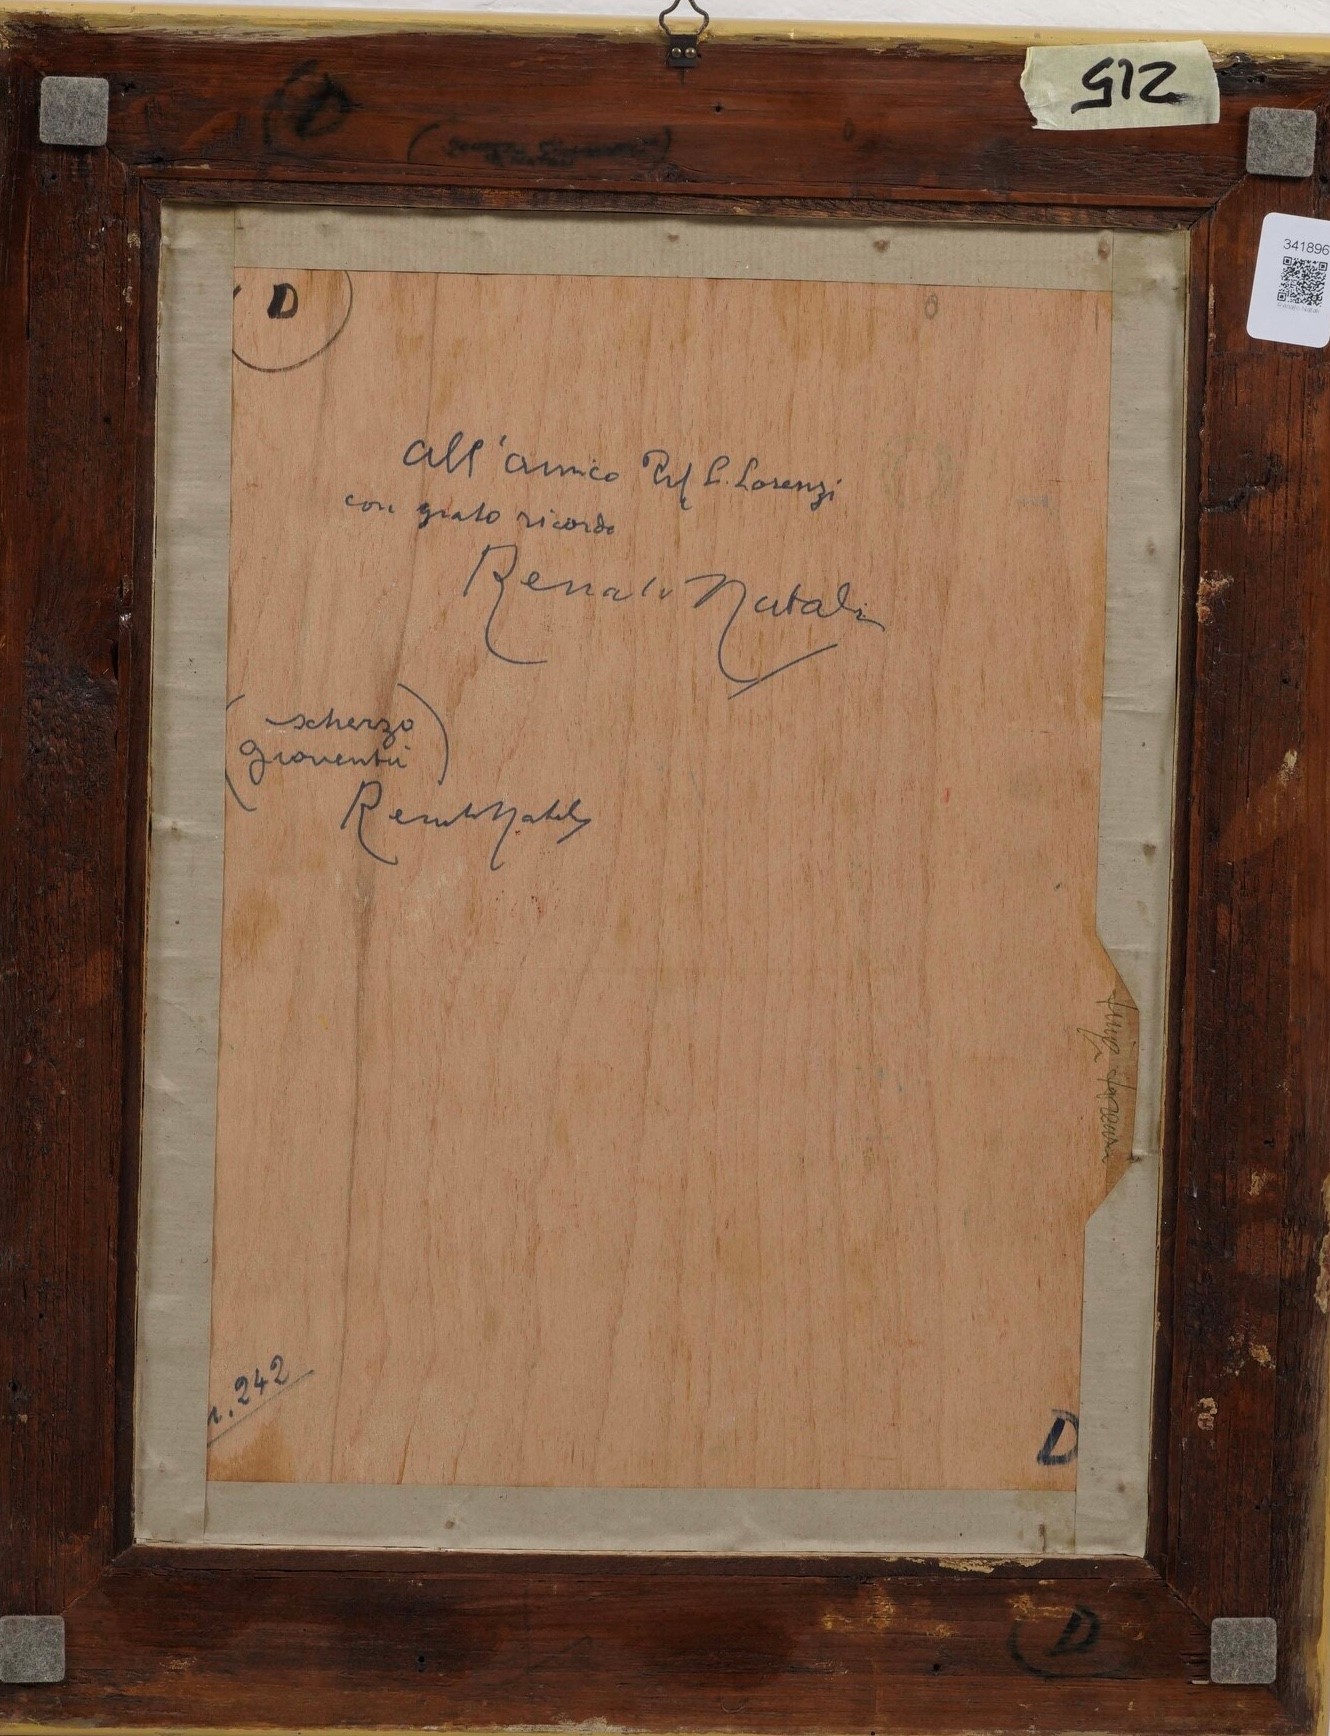 215
341896
D
D
all'amico Prof L. Lorenzi
con grato ricordo
Renato Natali
(scherzo
gioventù)
Renato Natali
Luigi Lorenzi
n. 242
D
D